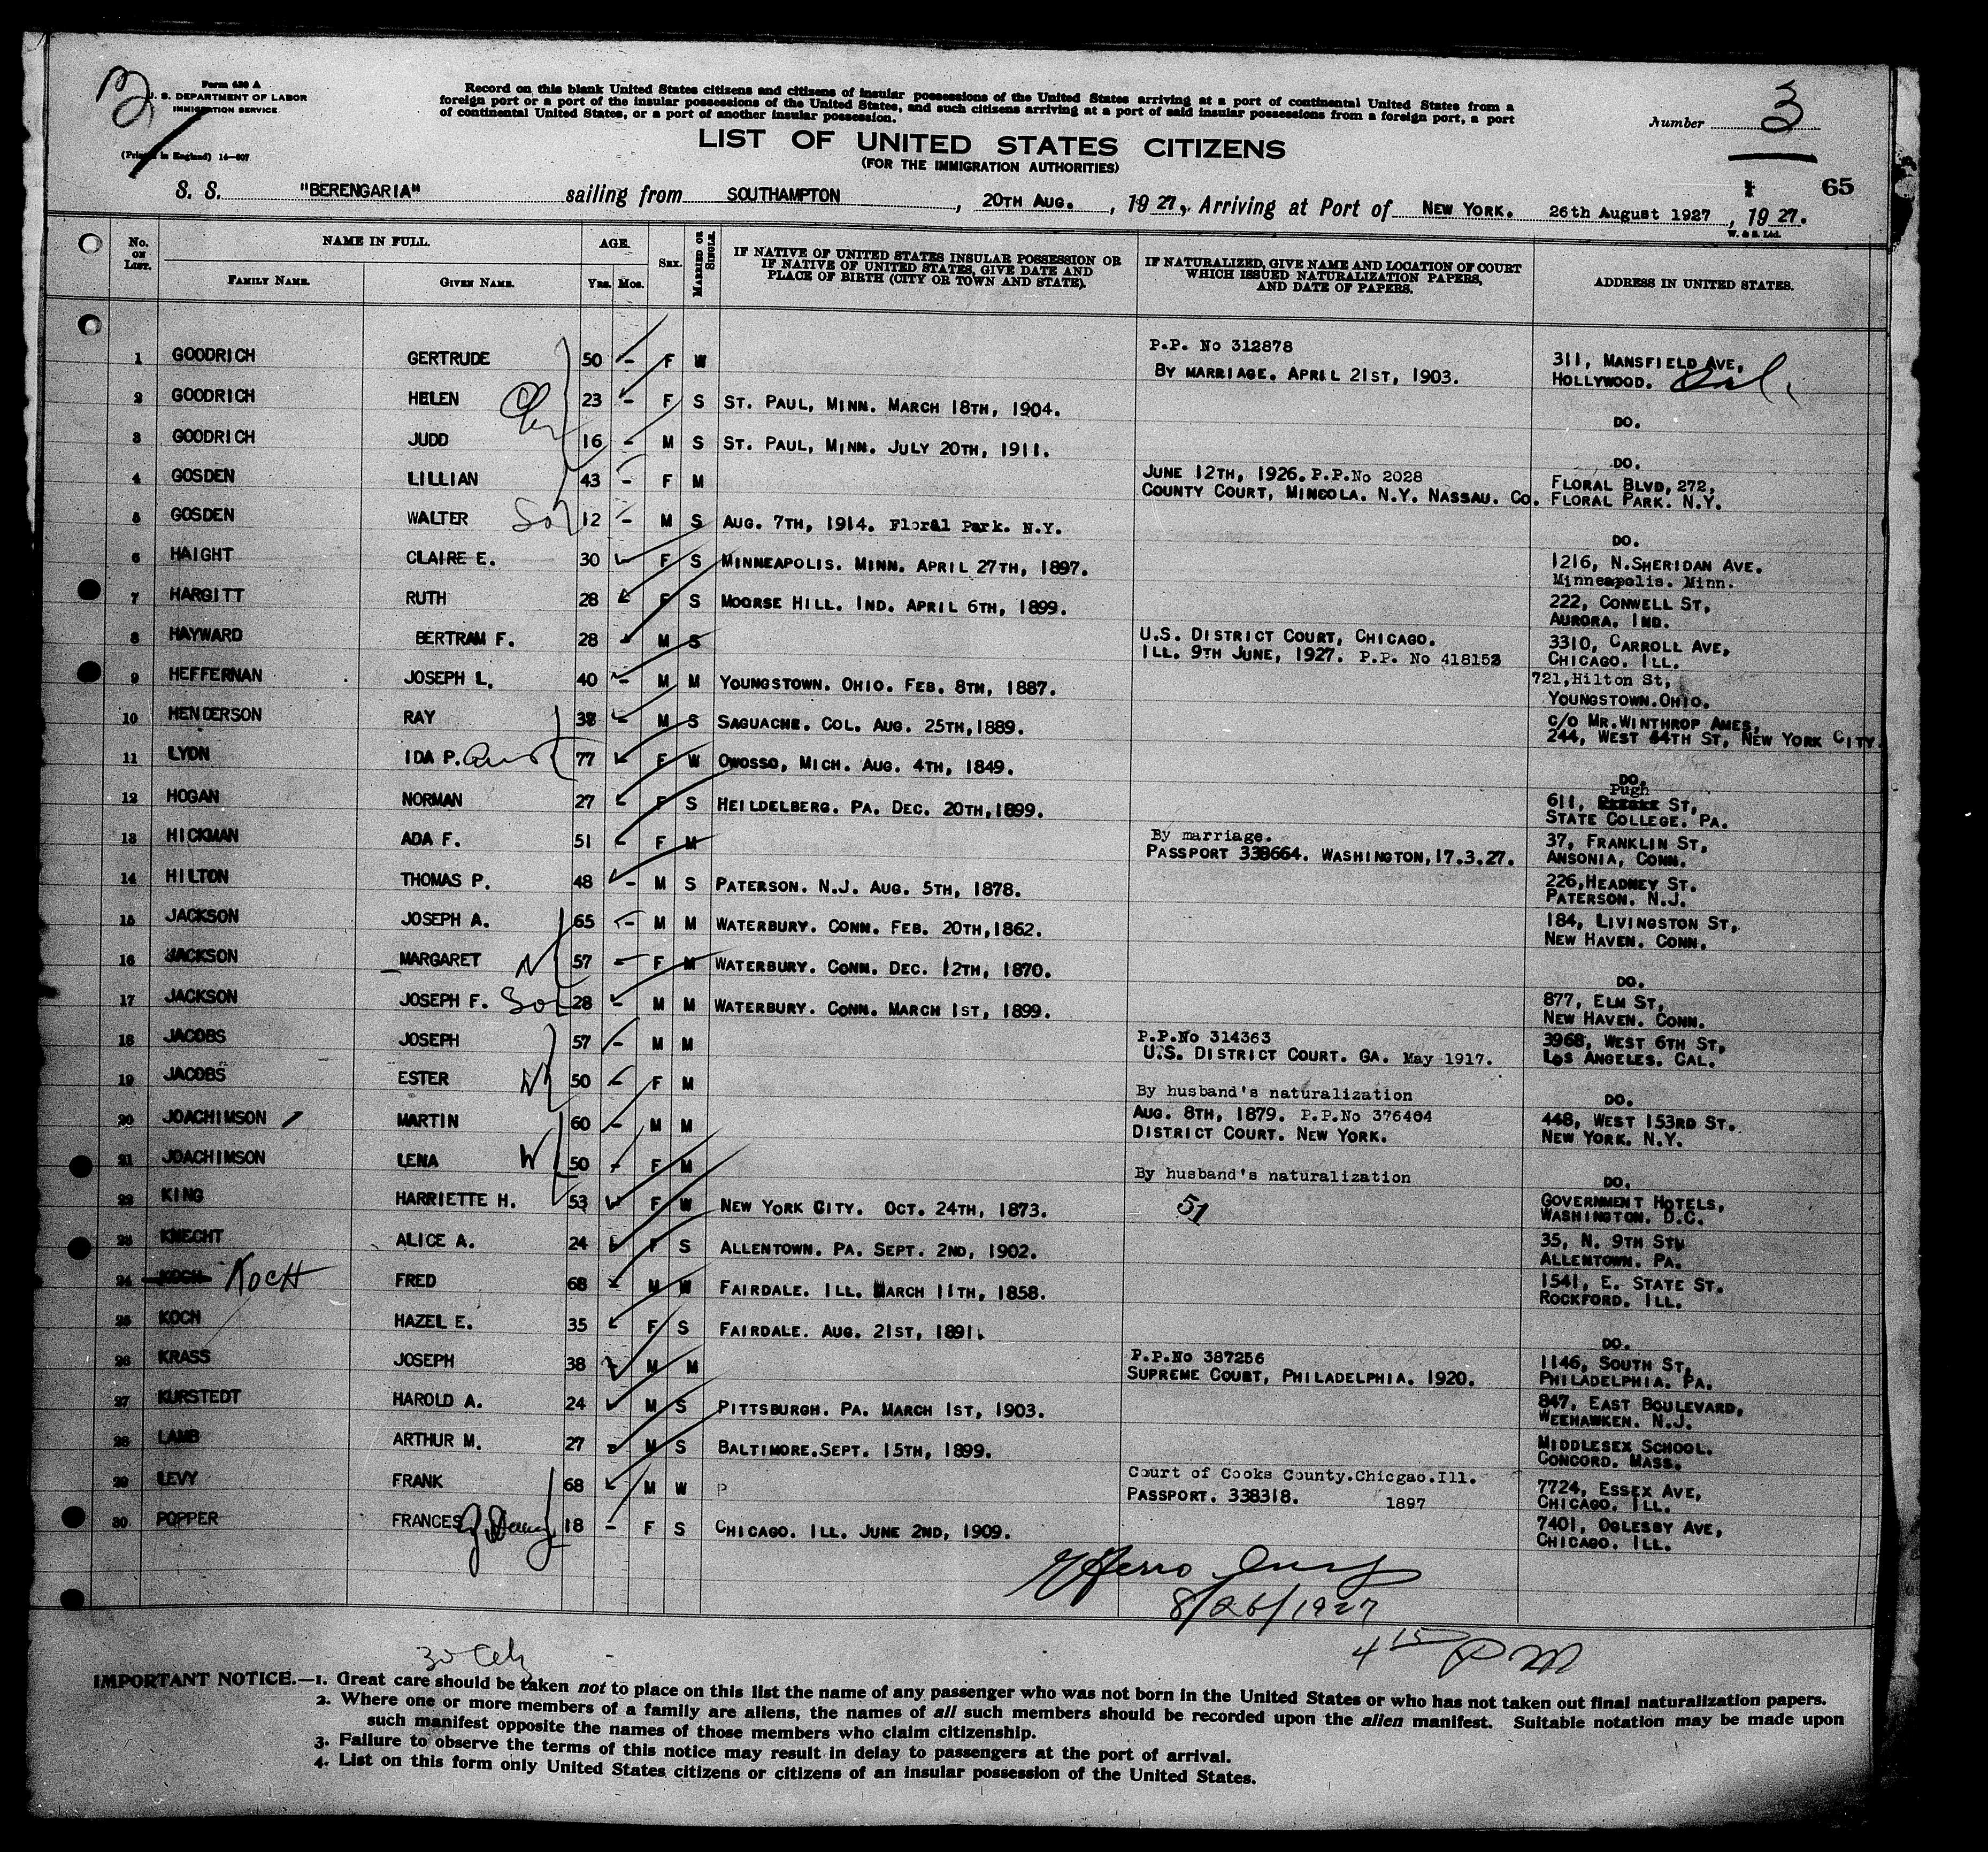 Form 630 A
U. S. DEPARTMENT OF LABOR
IMMIGRATION SERVICE
(Printed in England) 14—607
Record on this blank United States citizens and citizens of insular possessions of the United States arriving at a port of continental United States from a
foreign port or a port of the insular possessions of the United States, and such citizens arriving at a port of said insular possessions from a foreign port, a port
of continental United States, or a port of another insular possession.
Number 3
LIST OF UNITED STATES CITIZENS
(FOR THE IMMIGRATION AUTHORITIES)
65
S. S. "BERENGARIA" sailing from SOUTHAMPTON, 20TH AUG., 1927, Arriving at Port of NEW YORK. 26th August 1927, 1927.
W. & S. Ltd.
No. ON LIST. NAME IN FULL. AGE. SEX. MARRIED OR SINGLE. IF NATIVE OF UNITED STATES INSULAR POSSESSION OR IF NATIVE OF UNITED STATES, GIVE DATE AND PLACE OF BIRTH (CITY OR TOWN AND STATE). IF NATURALIZED, GIVE NAME AND LOCATION OF COURT WHICH ISSUED NATURALIZATION PAPERS, AND DATE OF PAPERS. ADDRESS IN UNITED STATES.
FAMILY NAME. GIVEN NAME. Yrs. Mos.
1 GOODRICH GERTRUDE 50 - F W P.P. No 312878 BY MARRIAGE. APRIL 21ST, 1903. 311, MANSFIELD AVE, HOLLYWOOD. Cal.
2 GOODRICH HELEN 23 - F S ST. PAUL, MINN. MARCH 18TH, 1904. DO.
3 GOODRICH JUDD 16 - M S ST. PAUL, MINN. JULY 20TH, 1911. DO.
4 GOSDEN LILLIAN 43 - F M JUNE 12TH, 1926. P.P.No 2028 COUNTY COURT, MINCOLA. N.Y. NASSAU. Co. FLORAL BLVD, 272, FLORAL PARK. N.Y.
5 GOSDEN WALTER So 12 - M S AUG. 7TH, 1914. Floral Park. N.Y. DO.
6 HAIGHT CLAIRE E. 30 F S MINNEAPOLIS. MINN. APRIL 27TH, 1897. 1216, N.SHERIDAN AVE. Minneapolis. Minn.
7 HARGITT RUTH 28 F S MOORSE HILL. IND. APRIL 6TH, 1899. 222, CONWELL ST, AURORA. IND.
8 HAYWARD BERTRAM F. 28 M S U.S. DISTRICT COURT, CHICAGO. ILL. 9TH JUNE, 1927. P.P. No 418152 3310, CARROLL AVE, CHICAGO. ILL.
9 HEFFERNAN JOSEPH L. 40 - M M YOUNGSTOWN. OHIO. FEB. 8TH, 1887. 721,Hilton St, YOUNGSTOWN.OHIO.
10 HENDERSON RAY 38 - M S SAGUACHE. COL. AUG. 25TH,1889. C/O MR.WINTHROP AMES, 244, WEST 44TH ST, NEW YORK CITY.
11 LYON IDA P. Aunt 77 F W OWOSSO, MICH. AUG. 4TH, 1849. DO.
12 HOGAN NORMAN 27 F S HEILDELBERG. PA. DEC. 20TH,1899. 611, Pugh ST, STATE COLLEGE. PA.
13 HICKMAN ADA F. 51 F M By marriage. PASSPORT 338664. WASHINGTON,17.3.27. 37, FRANKLIN ST, ANSONIA, CONN.
14 HILTON THOMAS P. 48 - M S PATERSON. N.J. AUG. 5TH, 1878. 226,HEADNEY ST. PATERSON. N.J.
15 JACKSON JOSEPH A. 65 - M M WATERBURY. CONN. FEB. 20TH,1862. 184, LIVINGSTON ST, NEW HAVEN. CONN.
16 JACKSON MARGARET W 57 - F M WATERBURY. CONN. DEC. 12TH, 1870. DO.
17 JACKSON JOSEPH F. So 28 - M M WATERBURY. CONN. MARCH 1ST, 1899. 877, ELM ST, NEW HAVEN. CONN.
18 JACOBS JOSEPH 57 - M M P.P.No 314363 U.S. DISTRICT COURT. GA. May 1917. 3968, WEST 6TH ST, LOS ANGELES. CAL.
19 JACOBS ESTER W 50 - F M By husband's naturalization DO.
20 JOACHIMSON MARTIN 60 - M M AUG. 8TH, 1879. P.P.No 376404 DISTRICT COURT. NEW YORK. 448, WEST 153RD ST. NEW YORK. N.Y.
21 JOACHIMSON LENA W 50 - F M By husband's naturalization DO.
22 KING HARRIETTE H. 53 F W NEW YORK CITY. OCT. 24TH, 1873. 51 GOVERNMENT HOTELS, WASHINGTON. D.C.
23 KNECHT ALICE A. 24 F S ALLENTOWN. PA. SEPT. 2ND, 1902. 35, N. 9TH ST, ALLENTOWN. PA.
24 KOCH KOCH FRED 68 M W FAIRDALE. ILL. MARCH 11TH, 1858. 1541, E. STATE ST. ROCKFORD. ILL.
25 KOCH HAZEL E. 35 F S FAIRDALE. AUG. 21ST, 1891. DO.
26 KRASS JOSEPH 38 M M P.P.No 387256 SUPREME COURT, PHILADELPHIA. 1920. 1146, SOUTH ST, PHILADELPHIA. PA.
27 KURSTEDT HAROLD A. 24 M S PITTSBURGH. PA. MARCH 1ST, 1903. 847, EAST BOULEVARD, WEEHAWKEN. N.J.
28 LAMB ARTHUR M. 27 M S BALTIMORE.SEPT. 15TH, 1899. MIDDLESEX SCHOOL. CONCORD. MASS.
29 LEVY FRANK 68 M W P Court of Cooks County.Chicgao.Ill. PASSPORT. 338318. 1897 7724, ESSEX AVE, CHICAGO. ILL.
30 POPPER FRANCES 18 - F S CHICAGO. ILL. JUNE 2ND, 1909. 7401, OGLESBY AVE, CHICAGO. ILL.
8/26/1927
4 15 PM
30
IMPORTANT NOTICE.—1. Great care should be taken not to place on this list the name of any passenger who was not born in the United States or who has not taken out final naturalization papers.
2. Where one or more members of a family are aliens, the names of all such members should be recorded upon the alien manifest. Suitable notation may be made upon
such manifest opposite the names of those members who claim citizenship.
3. Failure to observe the terms of this notice may result in delay to passengers at the port of arrival.
4. List on this form only United States citizens or citizens of an insular possession of the United States.